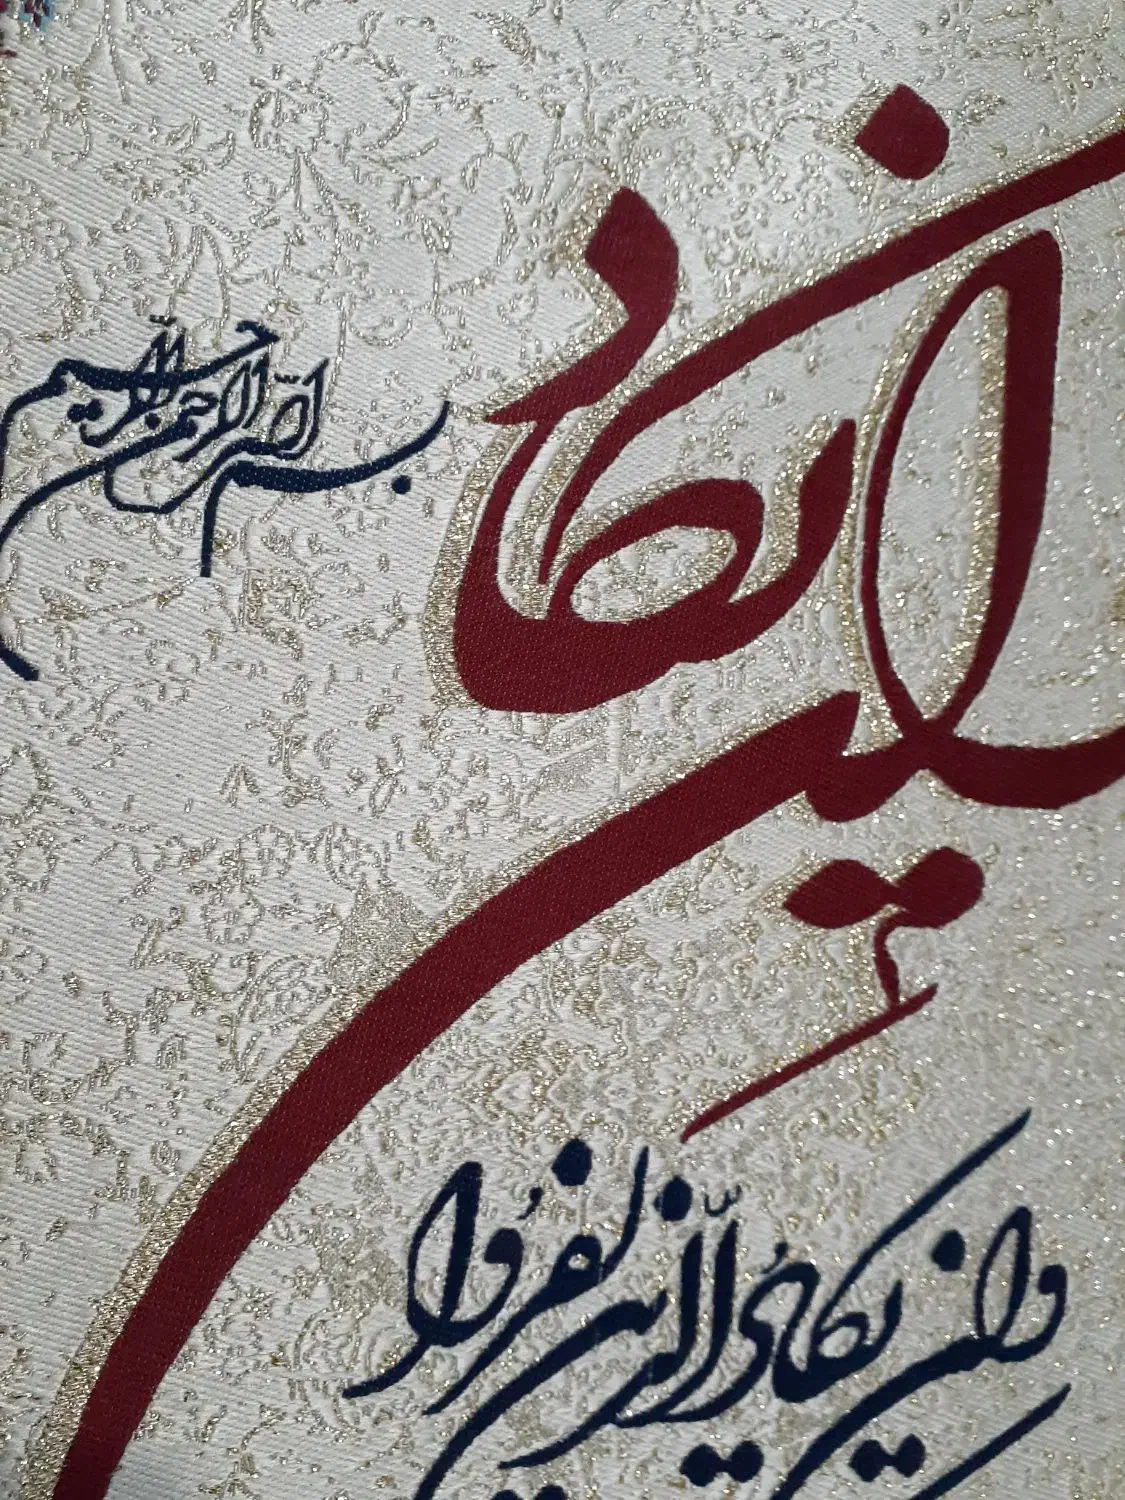 بسم الله الرحمن الرحیم
وان یکاد
وان یکاد الذین کفروا